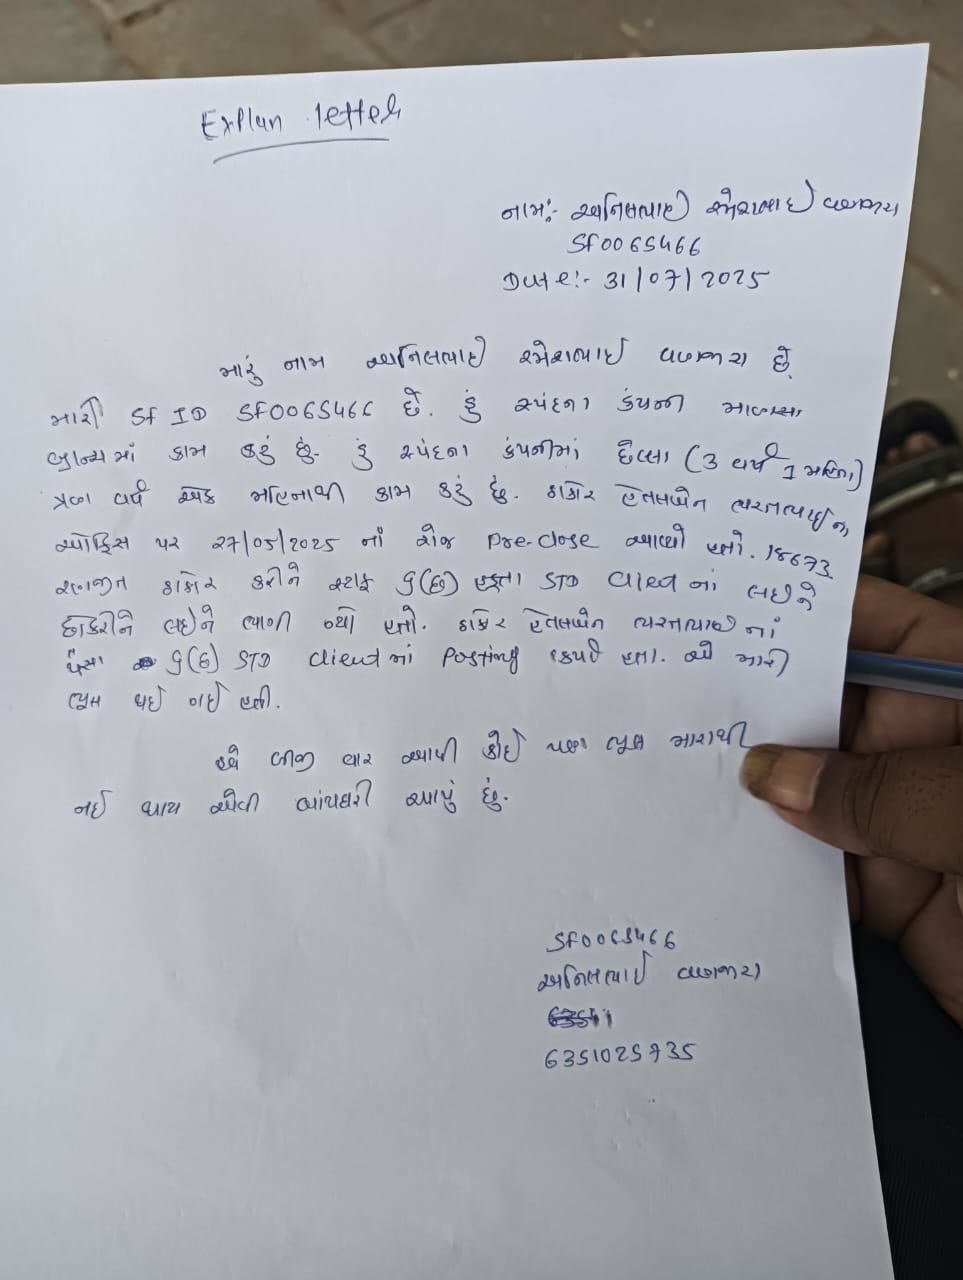 Explan letter
નામ:- અનિલભાઈ રમેશભાઈ વણઝારા
SF0065466
Date:- 31/07/2025
મારું નામ અનિલભાઈ રમેશભાઈ વણઝારા છે.
મારી SF ID SF0065466 છે. હું સ્પંદના કંપની માલપુર
બ્રાન્ચમાં કામ કરું છું. હું સ્પંદના કંપનીમાં છેલ્લા (3 વર્ષ 1 મહિના)
ત્રણ વર્ષ એક મહિનાથી કામ કરું છું. ઠાકોર હેતલબેન ભરતભાઈ ના
ઓફિસ પર 27/05/2025 નાં રોજ Pre-close આવ્યો હતો. 18673
ઠાકોર કરીને સ્ટાફ 6(છ) હફ્તા STD Client નાં લઇને
લઇને ભાગી ગયો હતો. ઠાકોર હેતલબેન ભરતભાઈ નાં
પૈસા 6(છ) STD client માં Posting કર્યા હતા. એ મારી
ભૂલ થઈ ગઈ હતી.
હવે બીજી વાર આવી કોઈ પણ ભૂલ મારાથી
નઈ થાય એવી બાંયધરી આપું છું.
SF0065466
અનિલભાઈ વણઝારા
6351025735